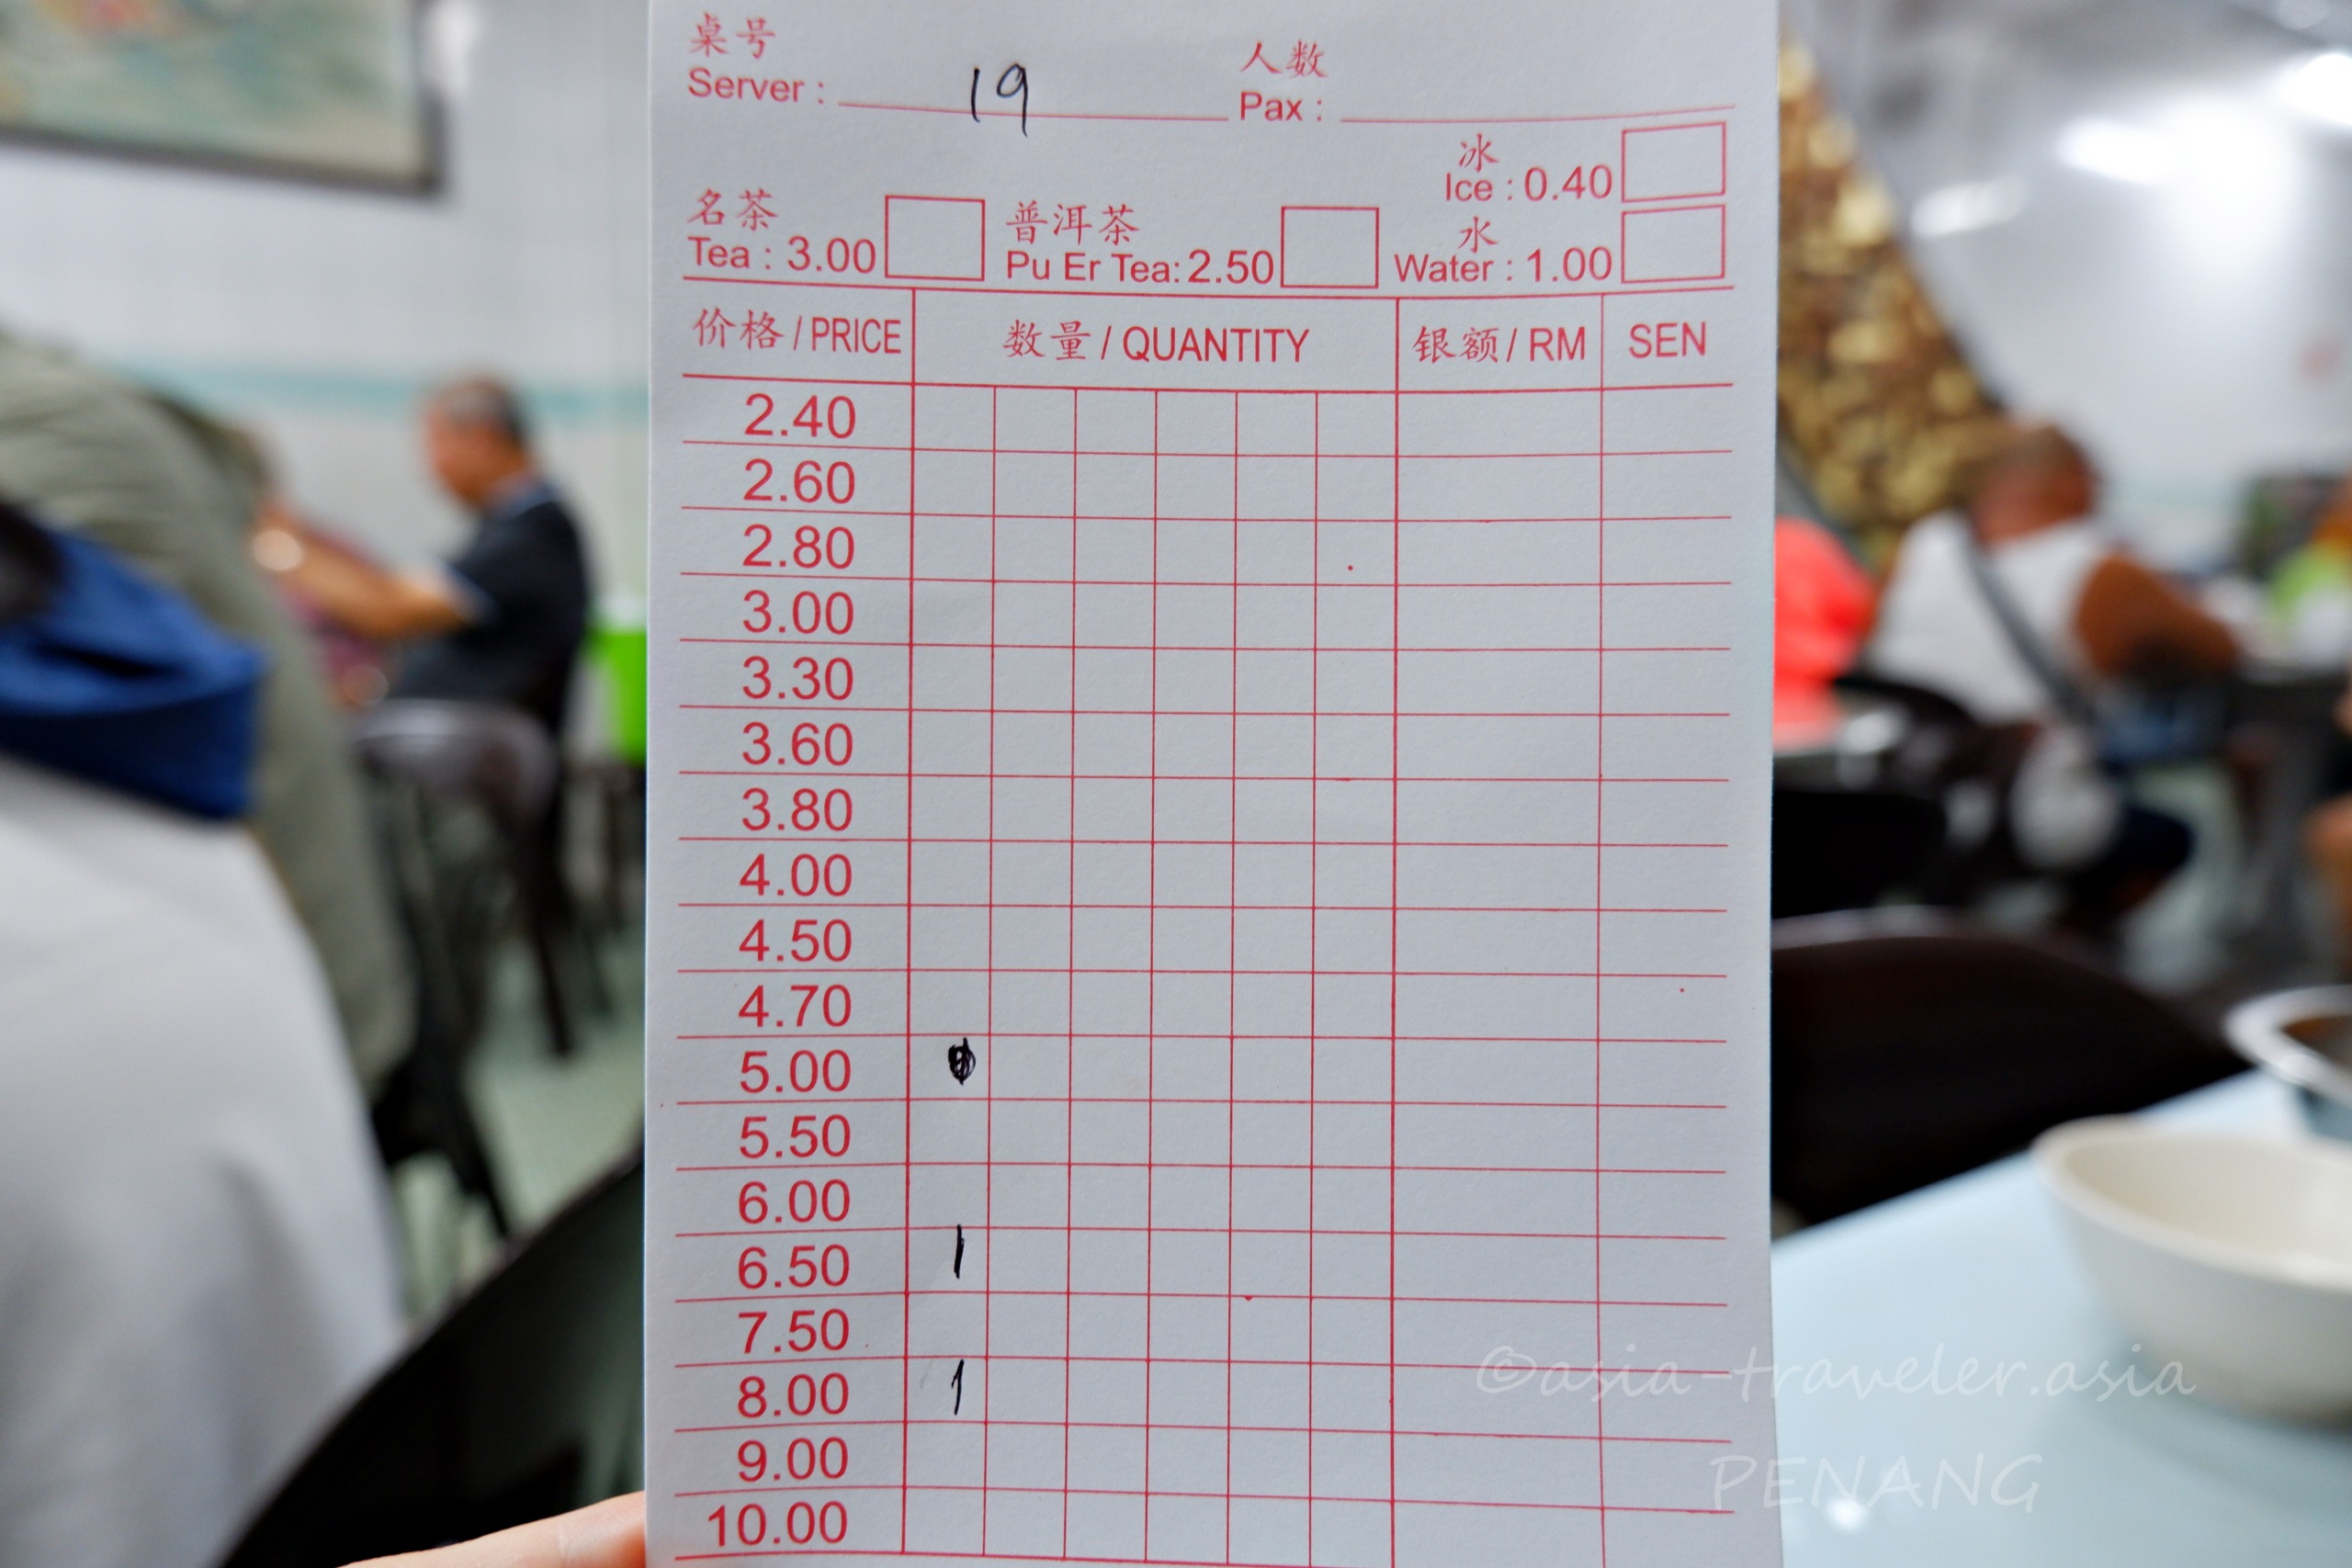 桌号
Server : 19
人数
Pax :
冰
Ice : 0.40
名茶
Tea : 3.00
普洱茶
Pu Er Tea: 2.50
水
Water : 1.00
价格 / PRICE 数量 / QUANTITY 银额 / RM SEN
2.40
2.60
2.80
3.00
3.30
3.60
3.80
4.00
4.50
4.70
5.00
5.50
6.00
6.50 1
7.50
8.00 1
9.00
10.00
©asia-traveler.asia
PENANG